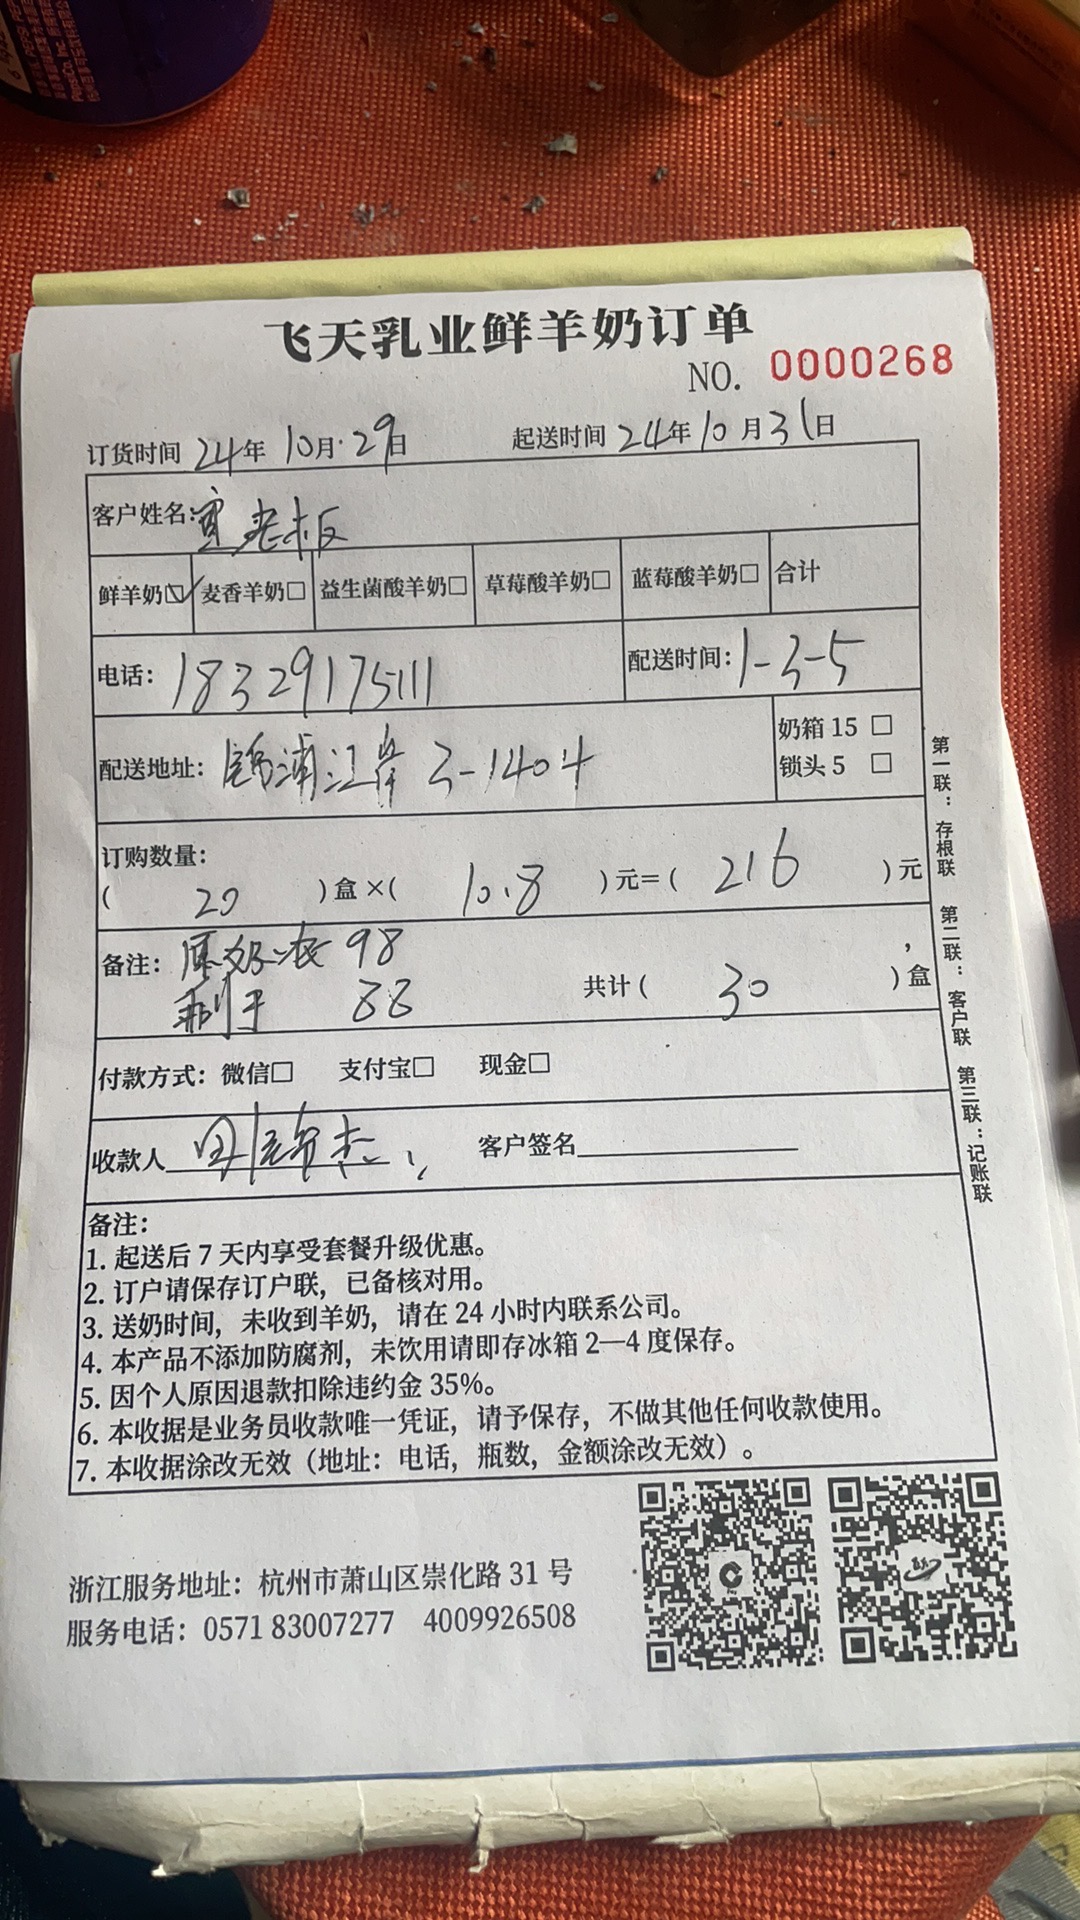 飞天乳业鲜羊奶订单
NO. 0000268
订货时间 24年 10月29日 起送时间 24年10月31日
客户姓名: 老板
鲜羊奶☑ 麦香羊奶□ 益生菌酸羊奶□ 草莓酸羊奶□ 蓝莓酸羊奶□ 合计
电话: 18329175111 配送时间: 1-3-5
配送地址: 浦江岸 3-1404 奶箱 15 □
锁头 5 □
订购数量:
( 20 )盒 ×( 10.8 )元=( 216 )元
备注: 原奶 98
88 共计( 30 )盒
付款方式: 微信□ 支付宝□ 现金□
收款人 客户签名
备注:
1. 起送后 7 天内享受套餐升级优惠。
2. 订户请保存订户联, 已备核对用。
3. 送奶时间, 未收到羊奶, 请在 24 小时内联系公司。
4. 本产品不添加防腐剂, 未饮用请即存冰箱 2—4 度保存。
5. 因个人原因退款扣除违约金 35%。
6. 本收据是业务员收款唯一凭证, 请予保存, 不做其他任何收款使用。
7. 本收据涂改无效 (地址: 电话, 瓶数, 金额涂改无效) 。
第一联: 存根联 第二联: 客户联 第三联: 记账联
浙江服务地址: 杭州市萧山区崇化路 31 号
服务电话: 0571 83007277 4009926508